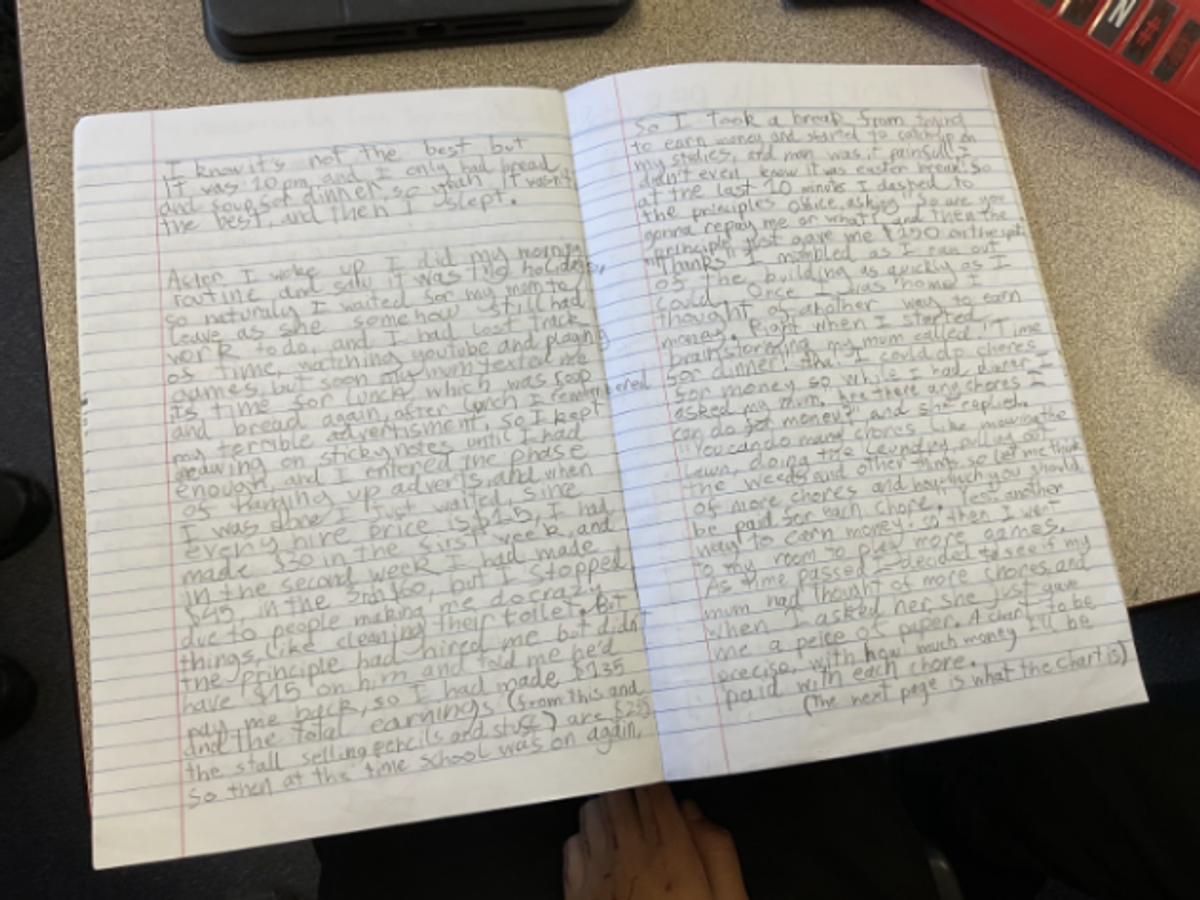 I know it's not the best but
it was 10 pm, and I only had bread
and soup for dinner, so yeah it wasn't
the best, and then I slept.
After I woke up I did my morning
routine and saw it was the holidays,
so naturaly I waited for my mum to
leave as she somehow still had
work to do, and I had lost track
of time, watching youtube and playing
games, but soon my mum yelled
its time for lunch which was soup
and bread again, after lunch I remembered
my terrible advertisment, so I kept
drawing on sticky notes until I had
enough, and I entered the phase
of hanging up adverts, and when
I was done I just waited, since
every hire price is $15, I had
made $30 in the first week, and
in the second week I had made
$45, in the 3rd $60, but I stopped
due to people making me do crazy
things, like cleaning their toilet. But
the principle had hired me but didn't
have $15 on him and told me he'd
pay me back, so I had made $135
and the total earnings (from this and
the stall selling pencils and stuff) are
So then at the time school was on again,
So I took a break from trying
to earn money and started to catch up on
my studies, and man was it painful! I
didn't even know it was easter break! So
at the last 10 minute I dashed to
the principles office, asking "So are you
gonna repay me or what?" and then the
principle just gave me $150 on the spot
"Thanks" I mumbled as I ran out
of the building as quickly as I
could. Once I was home I
thought of another way to earn
money. Right when I started
brainstorming, my mum called "Time
for dinner! that I could do chores
for money so while I had dinner I
asked my mum. Are there any chores I
can do for money?" and she replied.
"You can do many chores like mowing the
lawn, doing the laundry, pulling out
the weeds and other things so let me think
of more chores and how much you should
be paid for each chore." Yes, another
way to earn money. So then I went
to my room to play more games.
As time passed I decided to see if my
mum had thought of more chores and
when I asked her, she just gave
me a peice of paper. A chart to be
precise, with how much money I'll be
paid with each chore.
(The next page is what the chart is)